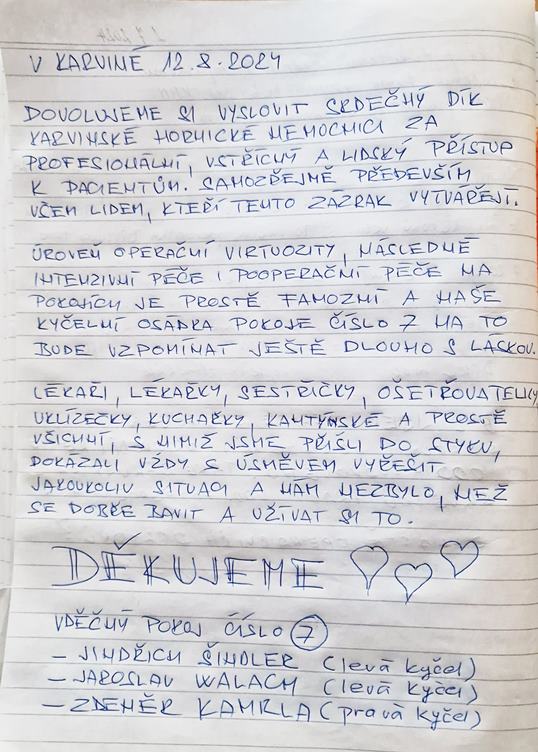 V KARVINÉ 12.8.2024
DOVOLUJEME SI VYSLOVIT SRDEČNÝ DÍK
KARVINSKÉ HORNICKÉ NEMOCNICI ZA
PROFESIONÁLNÍ, VSTŘÍCNÝ A LIDSKÝ PŘÍSTUP
K PACIENTŮM. SAMOZŘEJMĚ PŘEDEVŠÍM
VŠEM LIDEM, KTEŘÍ TENTO ZÁZRAK VYTVÁŘEJÍ.
ÚROVEŇ OPERAČNÍ VIRTUOZITY, NÁSLEDNÉ
INTENZIVNÍ PÉČE I POOPERAČNÍ PÉČE NA
POKOJÍCH JE PROSTĚ FAMOZNÍ A NAŠE
KYČELNÍ OSÁDKA POKOJE ČÍSLO 7 NA TO
BUDE VZPOMÍNAT JEŠTĚ DLOUHO S LÁSKOU.
LÉKAŘI, LÉKAŘKY, SESTŘIČKY, OŠETŘOVATELKY,
UKLÍZEČKY, KUCHAŘKY, KANTÝNSKÉ A PROSTĚ
VŠICHNI, S NIMIŽ JSME PŘIŠLI DO STYKU,
DOKÁZALI VŽDY S ÚSMĚVEM VYŘEŠIT
JAKOUKOLIV SITUACI A NÁM NEZBYLO, NEŽ
SE DOBŘE BAVIT A UŽÍVAT SI TO.
DĚKUJEME
VDĚČNÝ POKOJ ČÍSLO 7
– JINDŘICH ŠINDLER (levá kyčel)
– JAROSLAV WALACH (levá kyčel)
– ZDENĚK KAMRLA (pravá kyčel)